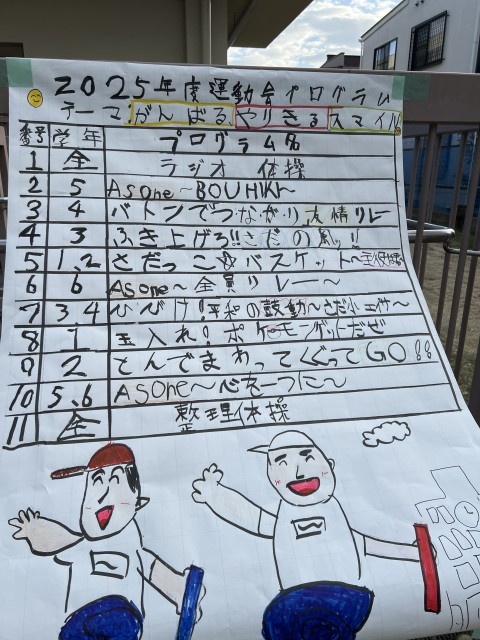 2025年度運動会プログラム
テーマ がんばる やりきる スマイル
番号 学年 プログラム名
1 全 ラジオ体操
2 5 As one～BOUHIKI～
3 4 バトンでつながり友情リレー
4 3 ふき上げろ!!さだの風ッ!!
5 1、2 さだっこ☆バスケット～玉入れ
6 6 As one～全員リレー～
7 3 4 ひびけ!平和の鼓動～さだ小ニイサー～
8 1 玉入れ!ポケモンゲットだぜ
9 2 とんでまわってくぐってGO!!
10 5、6 As one～心を一つに～
11 全 整理体操